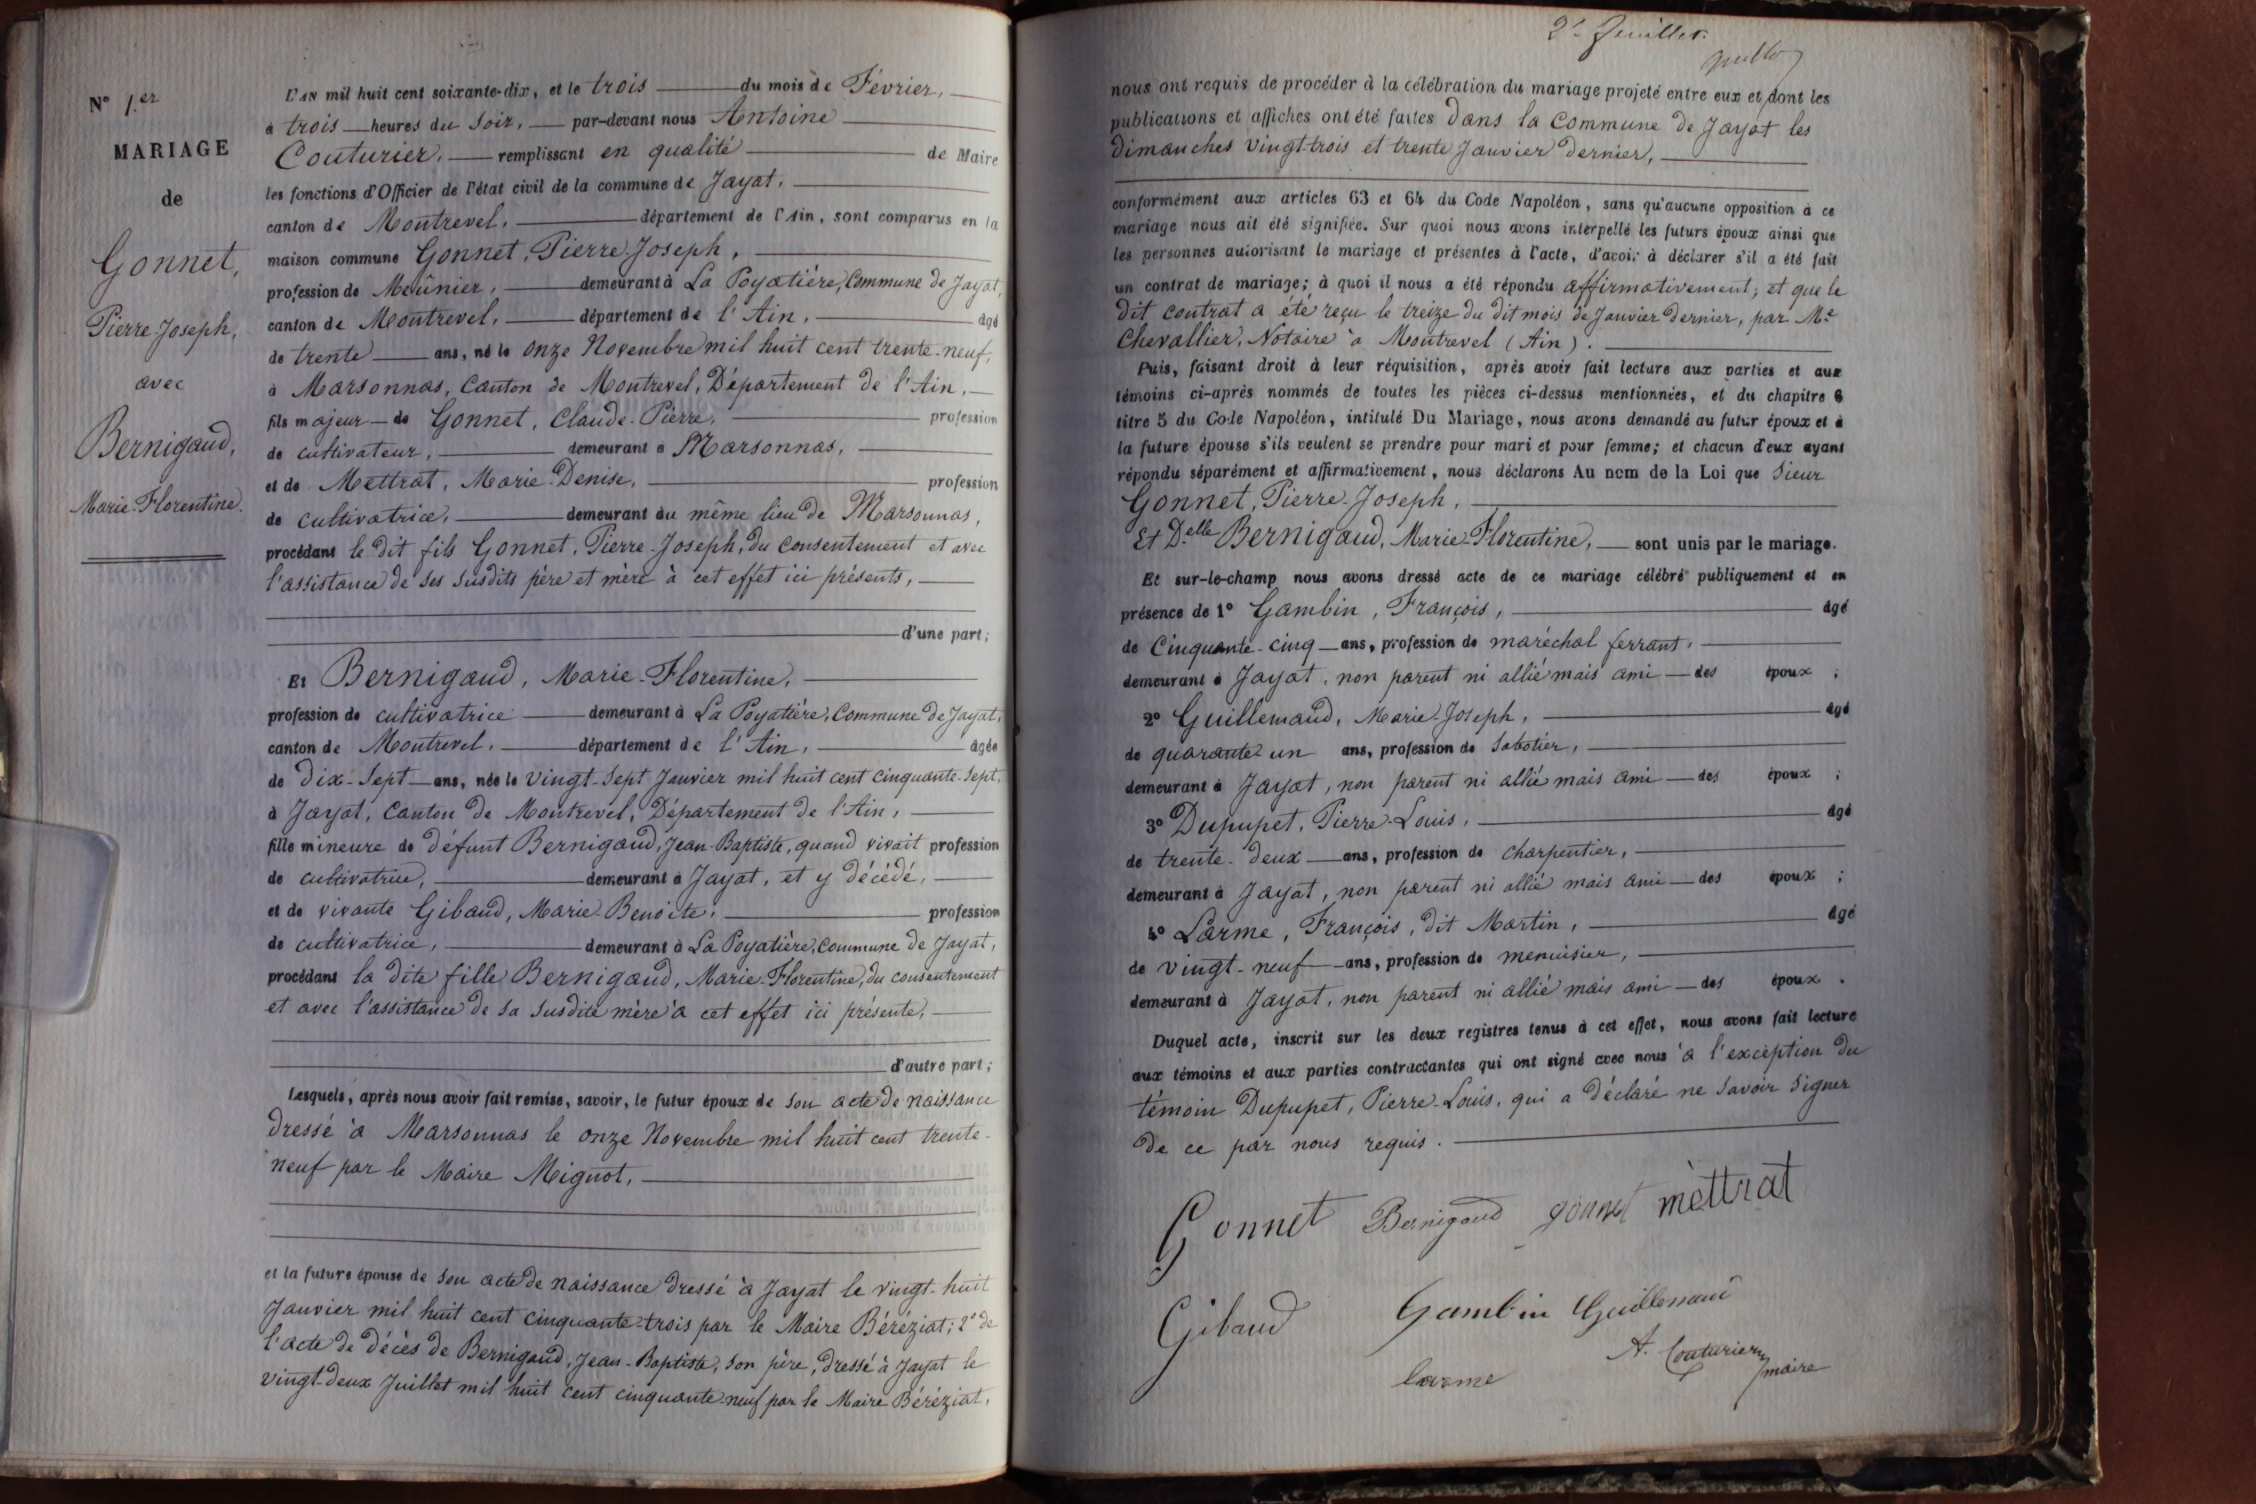 N° 1.er
MARIAGE
de
Gonnet,
Pierre-Joseph,
avec
Bernigaud,
Marie-Florentine.
L'AN mil huit cent soixante-dix, et le trois du mois de Février,
à trois heures du Soir, par-devant nous Antoine
Couturier, remplissant en qualité de Maire
les fonctions d'Officier de l'état civil de la commune de Jayat,
canton de Montrevel, département de l'Ain, sont comparus en la
maison commune Gonnet, Pierre-Joseph,
profession de Meûnier, demeurant à La Poyatière, Commune de Jayat,
canton de Montrevel, département de l'Ain, âgé
de trente ans, né le onze Novembre mil huit cent trente-neuf,
à Marsonnas, Canton de Montrevel, Département de l'Ain,
fils majeur de Gonnet, Claude-Pierre, profession
de cultivateur, demeurant à Marsonnas,
et de Mettrat, Marie-Denise, profession
de cultivatrice, demeurant au même lieu de Marsonnas,
procédant le dit fils Gonnet, Pierre-Joseph, du consentement et avec
l'assistance de ses susdits père et mère à cet effet ici présents,
d'une part;
Et Bernigaud, Marie-Florentine,
profession de cultivatrice demeurant à La Poyatière, Commune de Jayat,
canton de Montrevel, département de l'Ain, âgée
de dix-sept ans, née le vingt-sept Janvier mil huit cent cinquante-sept,
à Jayat, Canton de Montrevel, Département de l'Ain,
fille mineure de défunt Bernigaud, Jean-Baptiste, quand vivait profession
de cultivatrice, demeurant à Jayat, et y décédé,
et de vivante Gibaud, Marie-Benoite, profession
de cultivatrice, demeurant à La Poyatière, Commune de Jayat,
procédant la dite fille Bernigaud, Marie-Florentine, du consentement
et avec l'assistance de sa susdite mère à cet effet ici présente,
d'autre part;
Lesquels, après nous avoir fait remise, savoir, le futur époux de son acte de naissance
dressé à Marsonnas le onze Novembre mil huit cent trente-
neuf par le Maire Mignot,
et la future épouse de son acte de naissance dressé à Jayat le vingt-huit
Janvier mil huit cent cinquante-trois par le Maire Béréziat; 2° de
l'acte de décès de Bernigaud, Jean-Baptiste, son père, dressé à Jayat le
vingt-deux Juillet mil huit cent cinquante-neuf par le Maire Béréziat,
2e feuillet.
nous ont requis de procéder à la célébration du mariage projeté entre eux et dont les
publications et affiches ont été faites dans la Commune de Jayat les
dimanches vingt-trois et trente Janvier dernier,
conformément aux articles 63 et 64 du Code Napoléon, sans qu'aucune opposition à ce
mariage nous ait été signifiée. Sur quoi nous avons interpellé les futurs époux ainsi que
les personnes autorisant le mariage et présentes à l'acte, d'avoir à déclarer s'il a été fait
un contrat de mariage; à quoi il nous a été répondu affirmativement, et que le
dit contrat a été reçu le treize du dit mois de Janvier dernier, par Me
Chevallier, Notaire à Montrevel (Ain).
Puis, faisant droit à leur réquisition, après avoir fait lecture aux parties et aux
témoins ci-après nommés de toutes les pièces ci-dessus mentionnées, et du chapitre 6
titre 5 du Code Napoléon, intitulé Du Mariage, nous avons demandé au futur époux et à
la future épouse s'ils veulent se prendre pour mari et pour femme; et chacun d'eux ayant
répondu séparément et affirmativement, nous déclarons Au nom de la Loi que Sieur
Gonnet, Pierre-Joseph,
Et D.elle Bernigaud, Marie-Florentine, sont unis par le mariage.
Et sur-le-champ nous avons dressé acte de ce mariage célébré publiquement et en
présence de 1° Gambin, François, âgé
de Cinquante-cinq ans, profession de maréchal ferrant,
demeurant à Jayat, non parent ni allié mais ami des époux ;
2° Guillemaud, Marie-Joseph, âgé
de quarante-un ans, profession de Sabotier,
demeurant à Jayat, non parent ni allié mais ami des époux ;
3° Dupupet, Pierre-Louis, âgé
de trente-deux ans, profession de charpentier,
demeurant à Jayat, non parent ni allié mais ami des époux ;
4° Larme, François, dit Martin, âgé
de vingt-neuf ans, profession de menuisier,
demeurant à Jayat, non parent ni allié mais ami des époux.
Duquel acte, inscrit sur les deux registres tenus à cet effet, nous avons fait lecture
aux témoins et aux parties contractantes qui ont signé avec nous à l'exception du
témoin Dupupet, Pierre-Louis, qui a déclaré ne savoir signer
de ce par nous requis.
Gonnet Bernigaud gonnet mèttrat
Gibaud Gambin Guillemaud
larme A. Couturier maire